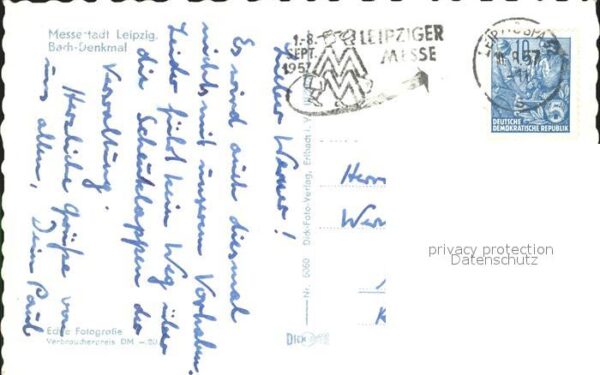 Messestadt Leipzig.
Bach-Denkmal
Lieber Werner!
Es wird auch diesmal
nichts mit unserem Vorhaben.
Leider führt kein Weg über
die Scheuklappen der
Verwaltung.
Herzliche Grüße von
uns allen, Dein Paul
Echte Fotografie
Verbraucherpreis DM
Nr. 5060 Dick-Foto-Verlag, Erlbach i. V.
DICK
1.-8.
SEPT.
1957
LEIPZIGER
MESSE
MM
LEIPZIG
57
10
5
DEUTSCHE
DEMOKRATISCHE REPUBLIK
Herrn
Wer
privacy protection
Datenschutz